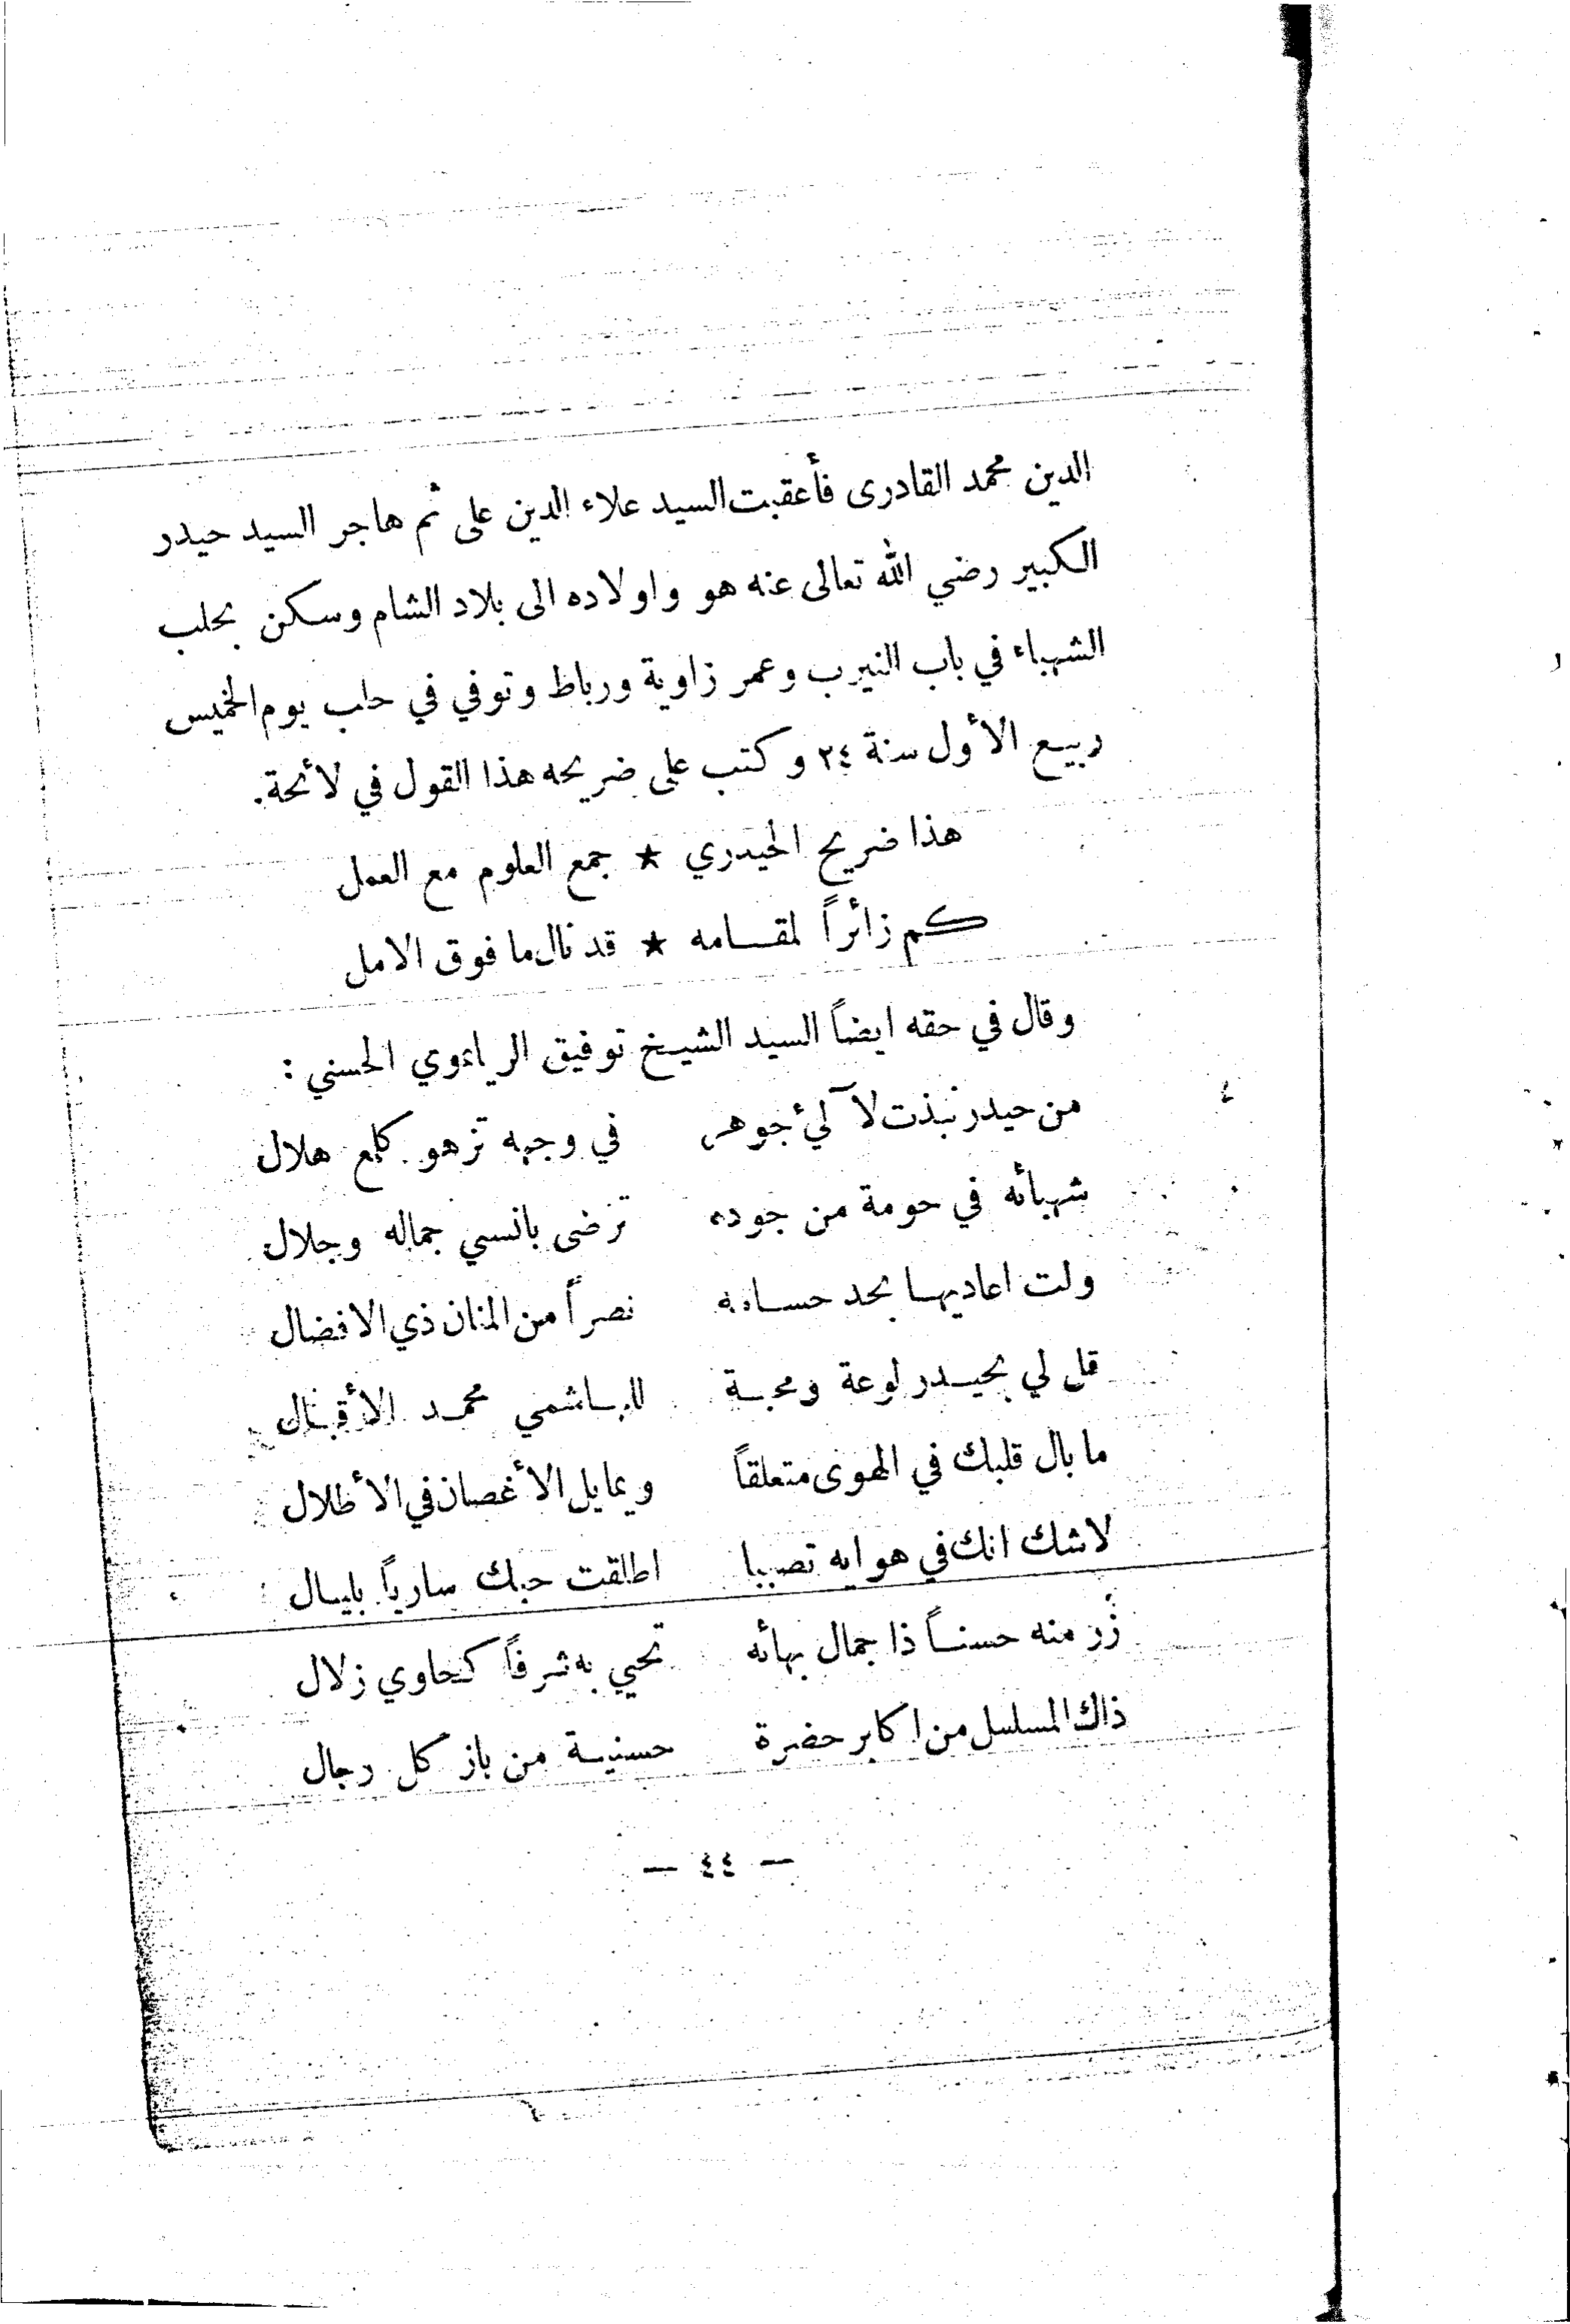 الدين محمد القادرى فأعقبت السيد علاء الدين على ثم هاجر السيد حيدر
الكبير رضي الله تعالى عنه هو واولاده الى بلاد الشام وسكن بحلب
الشهباء في باب النيرب وعمر زاوية ورباط وتوفي في حلب يوم الخميس
ربيع الأول سنة ٢٤ وكتب على ضريحه هذا القول في لائحة.
هذا ضريح الحيدري ★ جمع العلوم مع العمل
كم زائراً لمقامه ★ قد نال ما فوق الامل
وقال في حقه ايضاً السيد الشيخ توفيق الحسني :
من حيدر نبذت لآلئ جوهر في وجهه تزهو كلمع هلال
شهبائه في حومة من جوده ترضى بانسي جماله وجلال
ولت اعاديها بحد حسامه نصراً من المنان ذي الافضال
قل لي بحيدر لوعة ومحبة للهاشمي محمد الأقبال
ما بال قلبك في الهوى متعلقاً ويمايل الأغصان في الأظلال
لاشك انك في هوايه تصببا اطلقت حبك سارياً بليال
زُر منه حسناً ذا جمال بهائه تحيي به شرفاً كحاوي زلال
ذاك المسلسل من اكابر حضرة حسنية من باز كل رجال
— ٤٤ —